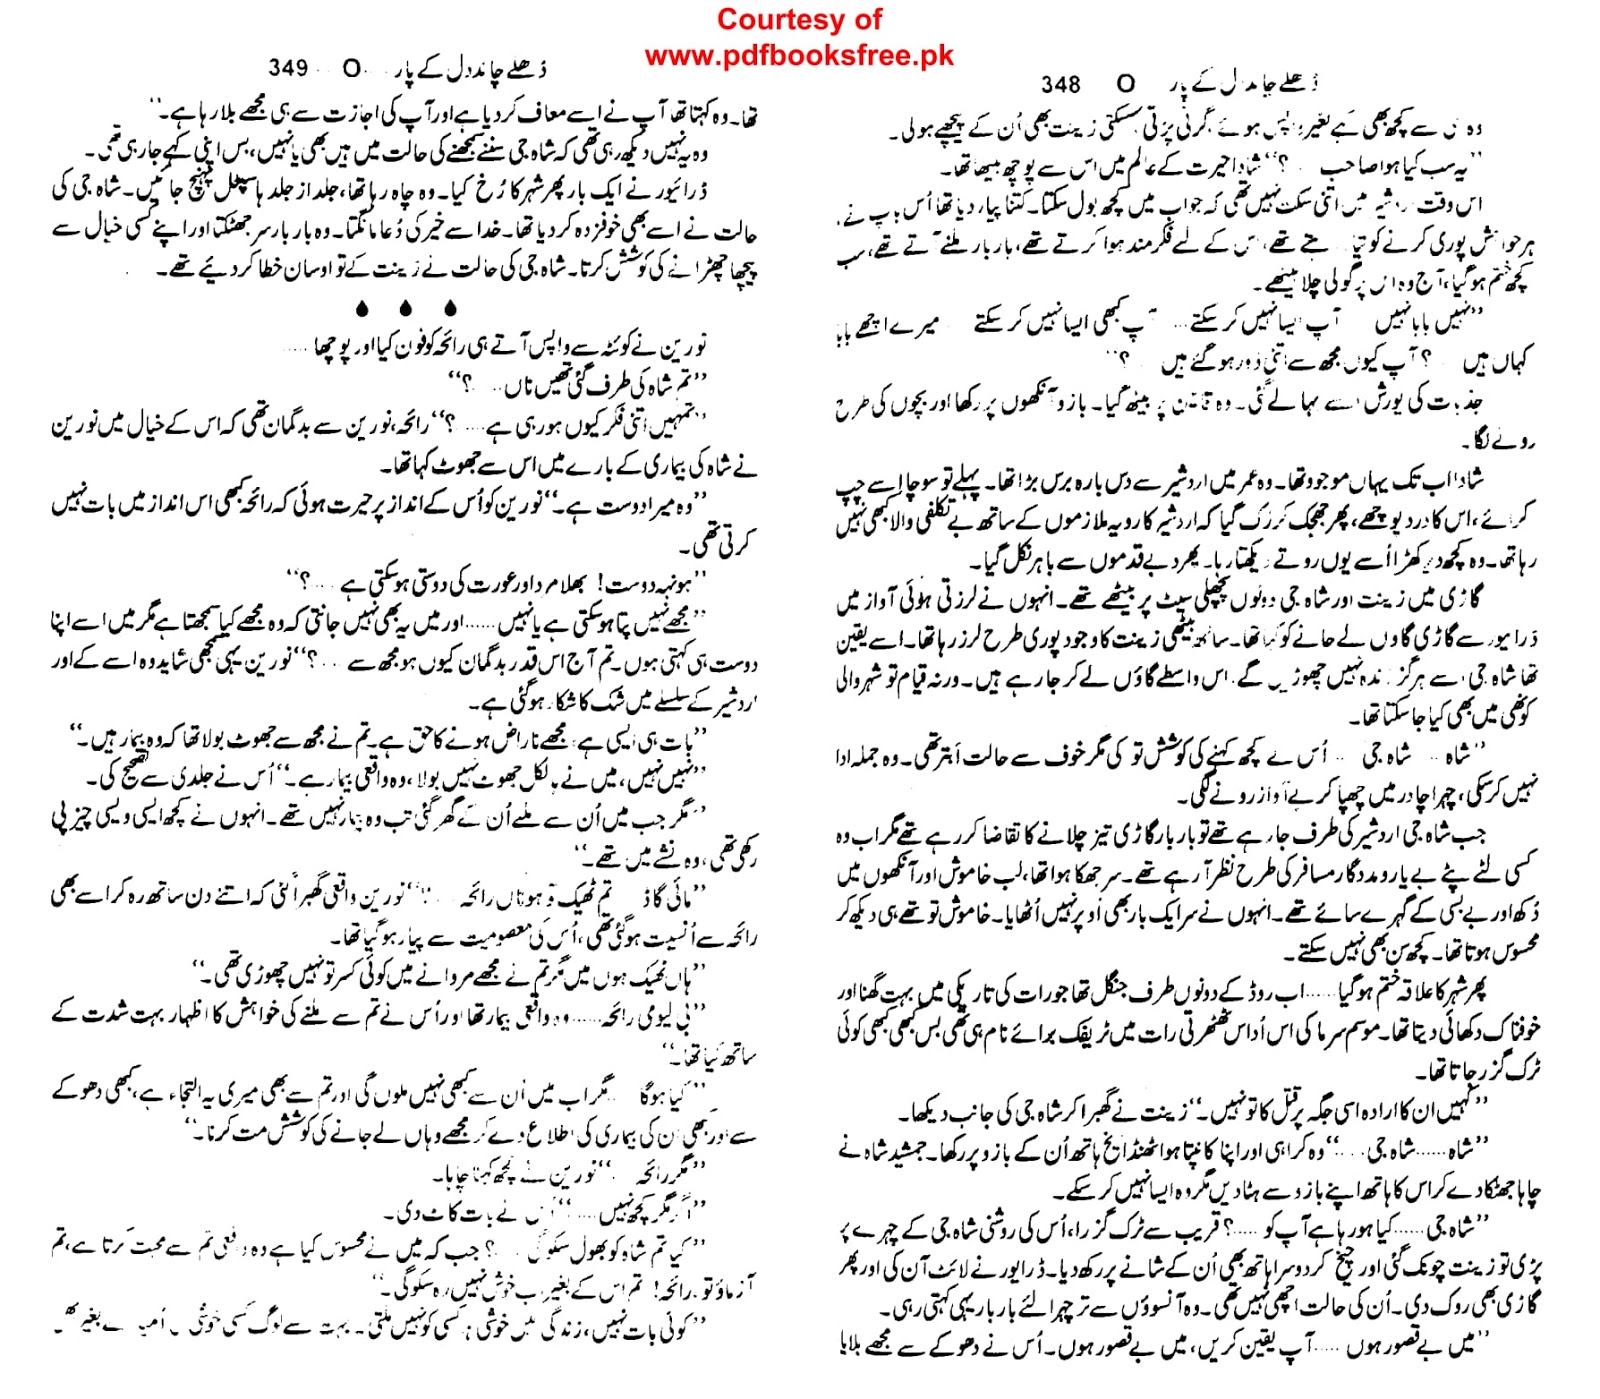 Courtesy of
www.pdfbooksfree.pk
ڈھلے چاند دل کے پار O 348
کچھ بھی کہے بغیر واپس ہوئے، گرتی پڑتی سسکتی زینت بھی اُن کے پیچھے ہولی۔
’’یہ سب کیا ہوا صاحب ؟‘‘ شادا حیرت کے عالم میں اس سے پوچھ بیٹھا تھا۔
اس وقت اردشیر میں اتنی سکت نہیں تھی کہ جواب میں کچھ بول سکتا۔ کتنا پیار دیا تھا اُس باپ نے،
ہر خواہش پوری کرنے کو تھے، اس کے لیے فکرمند ہوا کرتے تھے، بار بار ملنے آتے تھے، سب
کچھ ختم ہو گیا، آج وہ اس پر گولی چلا بیٹھے۔
’’نہیں بابا نہیں آپ ایسا نہیں کر سکتے... آپ کبھی ایسا نہیں کر سکتے میرے اچھے بابا
کہاں ہیں ؟ آپ کیوں مجھ سے اتنی دُور ہو گئے ہیں ؟‘‘
جذبات کی یورش اسے بہا لے گئی۔ وہ قالین پر بیٹھ گیا۔ بازو آنکھوں پر رکھا اور بچوں کی طرح
رونے لگا۔
شادا اب تک یہاں موجود تھا۔ وہ عمر میں اردشیر سے دس بارہ برس بڑا تھا۔ پہلے تو سوچا اسے چپ
کرائے، اس کا درد پوچھے، پھر جھجک کر رک گیا کہ اردشیر کا رویہ ملازموں کے ساتھ بے تکلفی والا کبھی نہیں
رہا تھا۔ وہ کچھ دیر کھڑا اُسے یوں روتے دیکھتا رہا۔ پھر دبے قدموں سے باہر نکل گیا۔
گاڑی میں زینت اور شاہ جی دونوں پچھلی سیٹ پر بیٹھے تھے۔ انہوں نے لرزتی ہوئی آواز میں
ڈرائیور سے گاڑی گاؤں لے جانے کو کہا تھا۔ ساتھ بیٹھی زینت کا وجود پوری طرح لرز رہا تھا۔ اسے یقین
تھا شاہ جی اسے ہرگز زندہ نہیں چھوڑیں گے۔ اس واسطے گاؤں لے کر جا رہے ہیں۔ ورنہ قیام تو شہر والی
کوٹھی میں بھی کیا جا سکتا تھا۔
’’شاہ .. شاہ جی .. اُس نے کچھ کہنے کی کوشش تو کی مگر خوف سے حالت اَبتر تھی۔ وہ جملہ ادا
نہیں کر سکی، چہرا چادر میں چھپا کر بے آواز رونے لگی۔
جب شاہ جی اردشیر کی طرف جا رہے تھے تو بار بار گاڑی تیز چلانے کا تقاضا کر رہے تھے مگر اب وہ
کسی لٹے پٹے بے یار و مددگار مسافر کی طرح نظر آ رہے تھے۔ سر جھکا ہوا تھا، لب خاموش اور آنکھوں میں
دُکھ اور بے بسی کے گہرے سائے تھے۔ انہوں نے سر ایک بار بھی اُوپر نہیں اُٹھایا۔ خاموش تو تھے ہی دیکھ کر
محسوس ہوتا تھا۔ کچھ سن بھی نہیں سکتے۔
پھر شہر کا علاقہ ختم ہو گیا...... اب روڈ کے دونوں طرف جنگل تھا جو رات کی تاریکی میں بہت گھنا اور
خوفناک دکھائی دیتا تھا۔ موسم سرما کی اس اُداس ٹھٹھرتی رات میں ٹریفک برائے نام ہی تھی بس کبھی کبھی کوئی
ٹرک گزر جاتا تھا۔
’’کہیں ان کا ارادہ اسی جگہ پر قتل کا تو نہیں۔‘‘ زینت نے گھبرا کر شاہ جی کی جانب دیکھا۔
’’شاہ...... شاہ جی....‘‘ وہ کراہی اور اپنا کانپتا ہوا ٹھنڈا یخ ہاتھ اُن کے بازو پر رکھا۔ جمشید شاہ نے
چاہا جھٹکا دے کر اس کا ہاتھ اپنے بازو سے ہٹا دیں مگر وہ ایسا نہیں کر سکے۔
’’شاہ جی...... کیا ہو رہا ہے آپ کو ....؟ قریب سے ٹرک گزرا، اُس کی روشنی شاہ جی کے چہرے پر
پڑی تو زینت چونک گئی اور چیخ کر دوسرا ہاتھ بھی اُن کے شانے پر رکھ دیا۔ ڈرائیور نے لائٹ آن کی اور پھر
گاڑی بھی روک دی۔ اُن کی حالت اچھی نہیں تھی۔ وہ آنسوؤں سے تر چہرا لئے بار بار یہی کہتی رہی۔
’’میں بے قصور ہوں ..... آپ یقین کریں، میں بے قصور ہوں۔ اُس نے دھوکے سے مجھے بلایا
ڈھلے چاند دل کے پار O 349
تھا۔ وہ کہتا تھا آپ نے اسے معاف کر دیا ہے اور آپ کی اجازت سے ہی مجھے بلا رہا ہے۔‘‘
وہ یہ نہیں دیکھ رہی تھی کہ شاہ جی سننے سمجھنے کی حالت میں ہیں بھی یا نہیں، بس اپنی کہے جا رہی تھی۔
ڈرائیور نے ایک بار پھر شہر کا رُخ کیا۔ وہ چاہ رہا تھا، جلد از جلد ہاسپٹل پہنچ جائیں۔ شاہ جی کی
حالت نے اسے بھی خوفزدہ کر دیا تھا۔ خدا سے خیر کی دُعا مانگتا۔ وہ بار بار سر جھٹکتا اور اپنے کسی خیال سے
پیچھا چھڑانے کی کوشش کرتا۔ شاہ جی کی حالت نے زینت کے تو اوسان خطا کر دئیے تھے۔
نورین نے کوئٹہ سے واپس آتے ہی رائحہ کو فون کیا اور پوچھا .....
’’تم شاہ کی طرف گئی تھیں ناں ... ؟‘‘
’’تمہیں اتنی فکر کیوں ہو رہی ہے .... ؟‘‘ رائحہ، نورین سے بدگمان تھی کہ اس کے خیال میں نورین
نے شاہ کی بیماری کے بارے میں اس سے جھوٹ کہا تھا۔
’’وہ میرا دوست ہے۔‘‘ نورین کو اُس کے انداز پر حیرت ہوئی کہ رائحہ کبھی اس انداز میں بات نہیں
کرتی تھی۔
’’ہونہہ دوست! بھلا مرد اور عورت کی دوستی ہو سکتی ہے ....؟‘‘
’’مجھے نہیں پتا ہو سکتی ہے یا نہیں ...... اور میں یہ بھی نہیں جانتی کہ وہ مجھے کیا سمجھتا ہے مگر میں اسے اپنا
دوست ہی کہتی ہوں۔ تم آج اس قدر بدگمان کیوں ہو مجھ سے ...؟‘‘ نورین یہی سمجھی شاید وہ اسے کے اور
اردشیر کے سلسلے میں شک کا شکار ہو گئی ہے۔
’’بات ہی ایسی ہے، مجھے ناراض ہونے کا حق ہے۔ تم نے مجھ سے جھوٹ بولا تھا کہ وہ بیمار ہیں۔‘‘
’’نہیں نہیں، میں نے بالکل جھوٹ نہیں بولا، وہ واقعی بیمار ہے۔‘‘ اُس نے جلدی سے تصحیح کی۔
’’مگر جب میں اُن سے ملنے اُن کے گھر گئی تب وہ بیمار نہیں تھے۔ انہوں نے کچھ ایسی ویسی چیز پی
رکھی تھی، وہ نشے میں تھے۔‘‘
’’مائی گاڈ تم ٹھیک تو ہو ناں رائحہ ....‘‘ نورین واقعی گھبرا اٹھی کہ اتنے دن ساتھ رہ کر اسے بھی
رائحہ سے اُنسیت ہو گئی تھی، اُس کی معصومیت سے پیار ہو گیا تھا۔
’’ہاں ٹھیک ہوں میں مگر تم نے مجھے مروانے میں کوئی کسر تو نہیں چھوڑی تھی۔‘‘
’’بی لیو می رائحہ...... وہ واقعی بیمار تھا اور اُس نے تم سے ملنے کی خواہش کا اظہار بہت شدت کے
ساتھ کیا تھا۔‘‘
’’کیا ہوگا مگر اب میں اُن سے کبھی نہیں ملوں گی اور تم سے بھی میری یہ التجاء ہے، کبھی دھوکے
سے اور بھی اُن کی بیماری کی اطلاع دے کر مجھے وہاں لے جانے کی کوشش مت کرنا۔‘‘
’’مگر رائحہ .‘‘ نورین نے کچھ کہنا چاہا۔
’’اگر مگر کچھ نہیں ....‘‘ اُس نے بات کاٹ دی۔
’’کیا تم شاہ کو بھول سکو گی ...؟ جب کہ میں نے محسوس کیا ہے وہ واقعی تم سے محبت کرتا ہے، تم
آزماؤ تو، رائحہ! تم اس کے بغیر خوش نہیں رہ سکو گی۔‘‘
’’کوئی بات نہیں، زندگی میں خوشی ہر کسی کو نہیں ملتی۔ بہت سے لوگ کسی خوشی کے بغیر